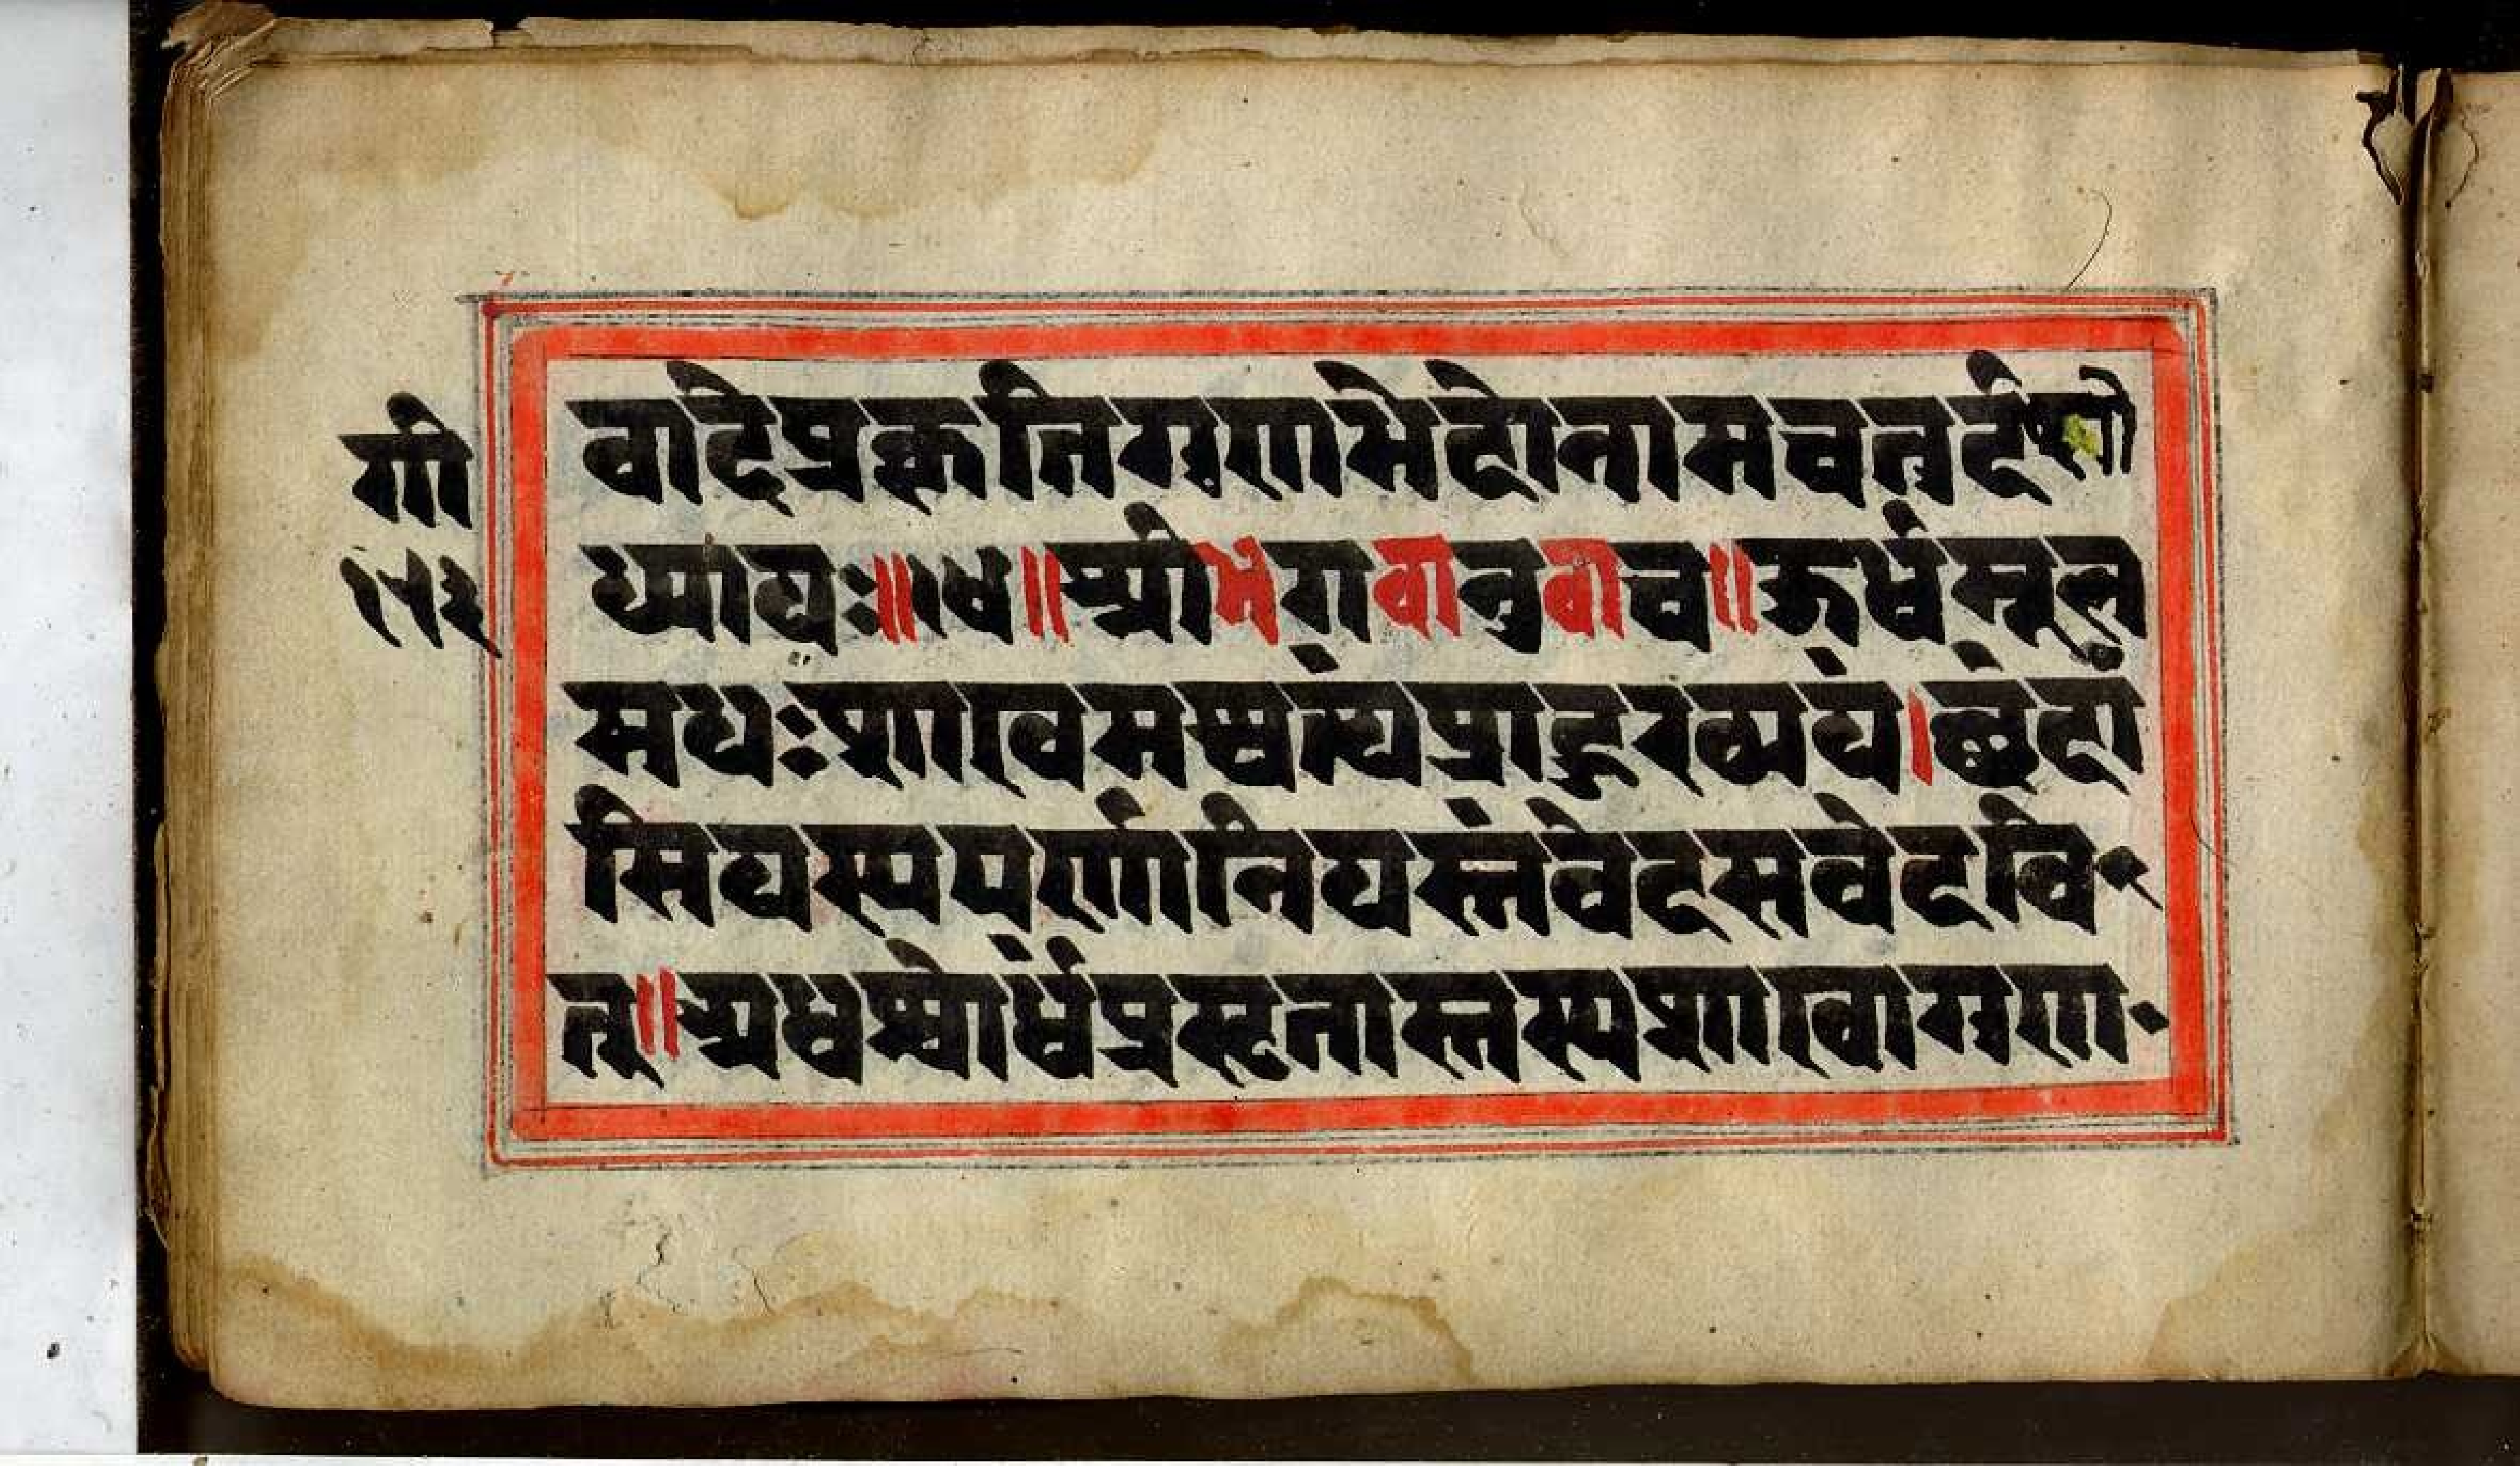 गी
१५३
वादेप्रकृतिगुणभेदोनामचतुर्दशो
ध्यायः॥१४॥श्रीभगवानुवाच॥ऊर्ध्वमूल
मधःशाखमश्वत्थंप्राहुरव्ययं।छंदां
सियस्यपर्णानियस्तंवेदसवेदवि
त्॥अधश्चोर्ध्वंप्रसृतास्तस्यशाखागुणा